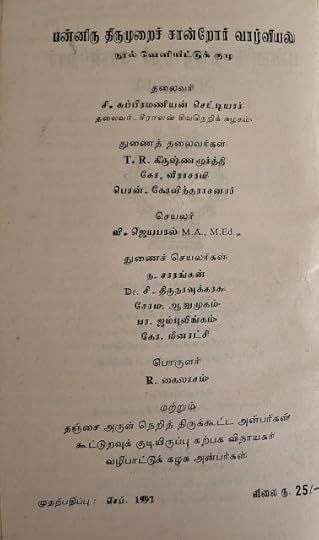 பன்னிரு திருமுறைச் சான்றோர் வாழ்வியல்
நூல் வெளியீட்டுக் குழு
தலைவர்
சி. சுப்பிரமணியன் செட்டியார்
தலைவர். சீராளன் சிவநெறிக் கழகம்.
துணைத் தலைவர்கள்
T. R. கிருஷ்ணமூர்த்தி
கோ, வீராசாமி
பொன். கோவிந்தராசனார்
செயலர்
வி. ஜெயபால் M.A., M.Ed.,
துணைச் செயலர்கள்
ந. சாரங்கன்
Dr. சி. திருநாவுக்கரசு
சோம. ஆறுமுகம்
பா. ஜம்புலிங்கம்
கோ. மீனாட்சி
பொருளர்
R. கைலாசம்
மற்றும்
தஞ்சை அருள் நெறித் திருக்கூட்ட அன்பர்கள்
கூட்டுறவுக் குடியிருப்பு கற்பக விநாயகர்
வழிபாட்டுக் கழக அன்பர்கள்
முதற்பதிப்பு: செப். 1997 விலை ரூ. 25/-